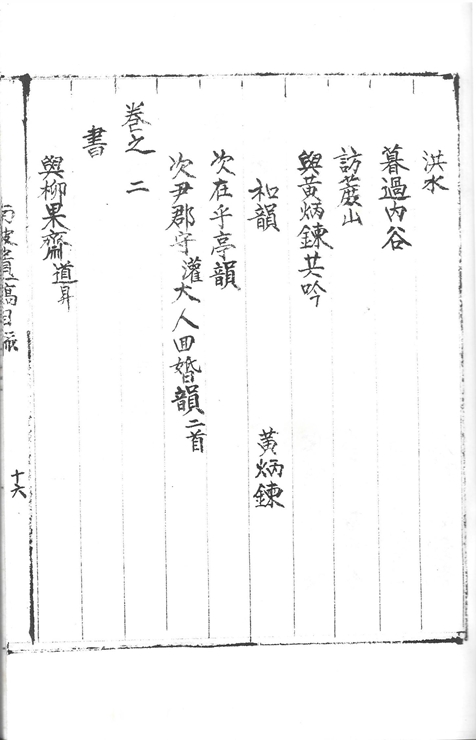 洪水
暮過內谷
訪蘆山
與黃炳鍊共吟
和韻 黃炳鍊
次在乎亭韻
次尹郡守灌大人回婚韻二首
卷之二
書
與柳果齋道昇
遺稿目錄
十六